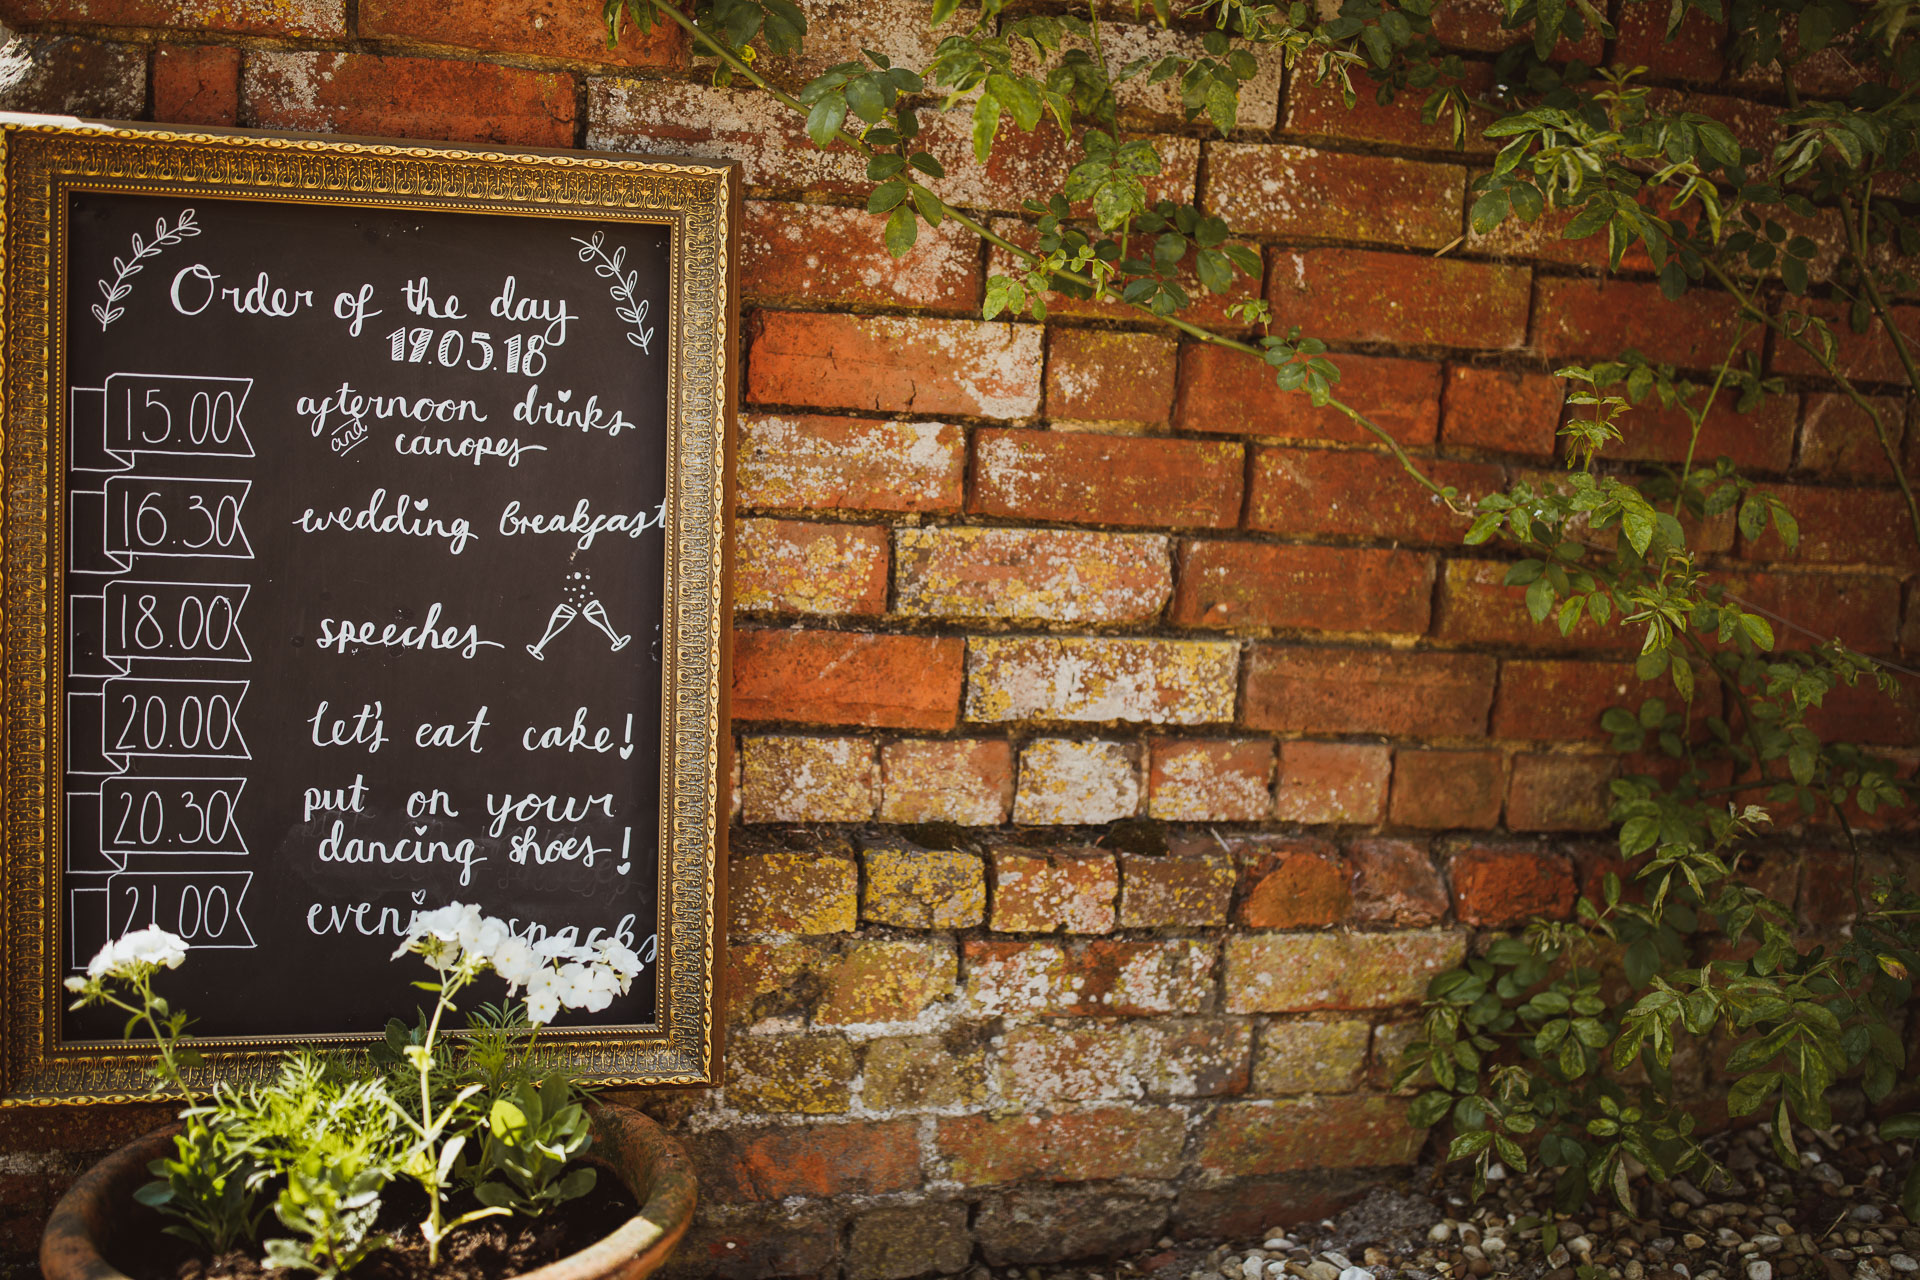 Order of the day
19.05.18
15.00 afternoon drinks
and canopes
16.30 wedding breakfast
18.00 speeches
20.00 let's eat cake!
20.30 put on your
dancing shoes!
21.00 evening snacks